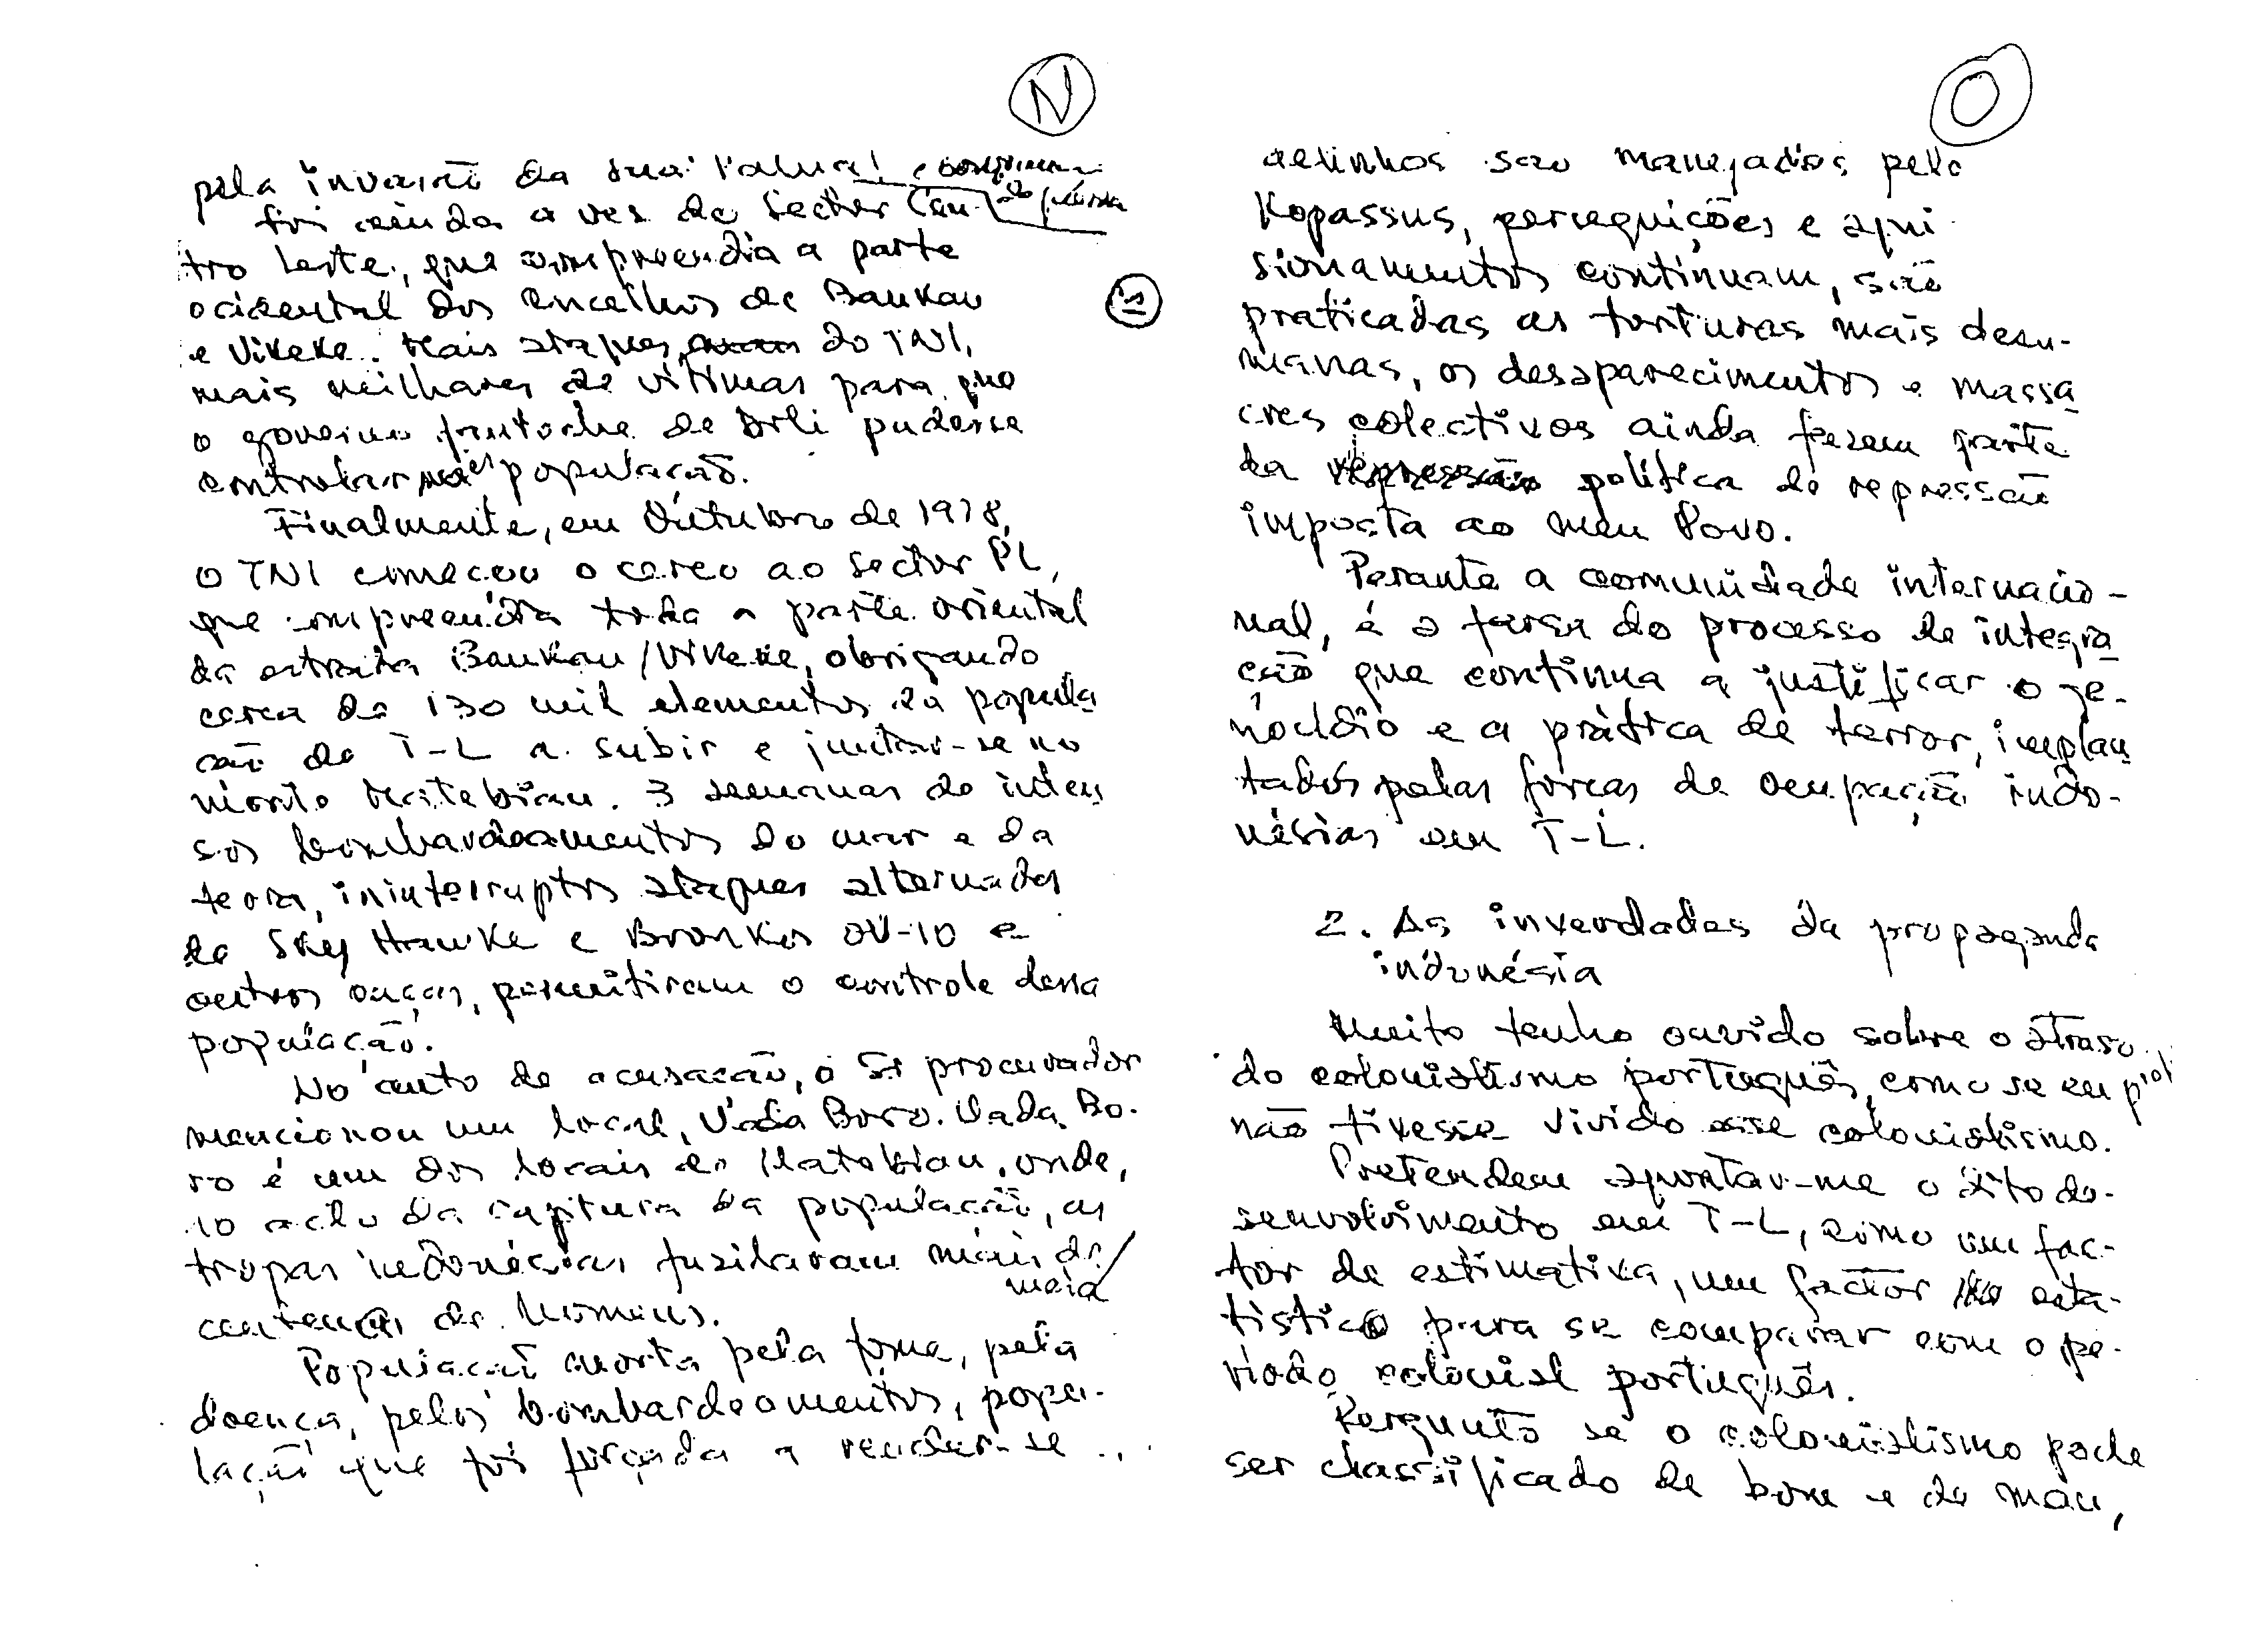 N
pela invasão da sua Pátria!
foi ainda a vez do Sector Cen-
tro Leste, que compreendia a parte
ocidental dos concelhos de Baukau
e Vikeke. Mais ataques do TNI,
mais milhares de vítimas para que
o governo fantoche de Dili pudesse
controlar populacão.
Finalmente, em Outubro de 1978,
o TNI começou o cerco ao sector PL,
que compreendia toda a parte oriental
da estrada Baukau/Vikeke, obrigando
cerca de 130 mil elementos da popula
cão de T-L a subir e juntar-se no
monte Matebian. 3 semanas de inten
sos bombardeamentos do mar e da
terra, ininterruptos ataques alternados
de Sky Hawke e Bronkos OV-10 e
outros, permitiram o controle dessa
população.
No auto de acusacão, o Sr procurador
mencionou um local, Uada Boro. Uada Bo-
ro é um dos locais de Matebian, onde,
no acto da captura da população, as
tropas indonésias fusilaram mais de
meia
centena de homens.
População morta pela fome, pela
doença, pelos bombardeamentos, popu-
lação que foi forçada a render-se ..
O
são manejados pelo
Kopassus, perseguições e apri
sionamentos continuam, são
praticadas as torturas mais desu-
manas, os desaparecimentos e massa
cres colectivos ainda fazem parte
da política de repressão
imposta ao meu Povo.
Perante a comunidade internacio-
nal, é a farsa do processo de integra
ção que continua a justificar o ge-
nocídio e a prática de terror, implan
tados pelas forças de ocupação indo-
nésias em T-L.
2. As inverdades da propaganda
indonésia
Muito tenho ouvido sobre o atraso
do colonialismo português, como se eu
não tivesse vivido esse colonialismo.
Pretendem apontar-me o dito de-
senvolvimento em T-L, como um fac-
tor de estimativa, um factor esta-
tístico para se comparar com o pe-
riodo colonial português.
Pergunto se o colonialismo pode
ser classificado de bom e de mau,